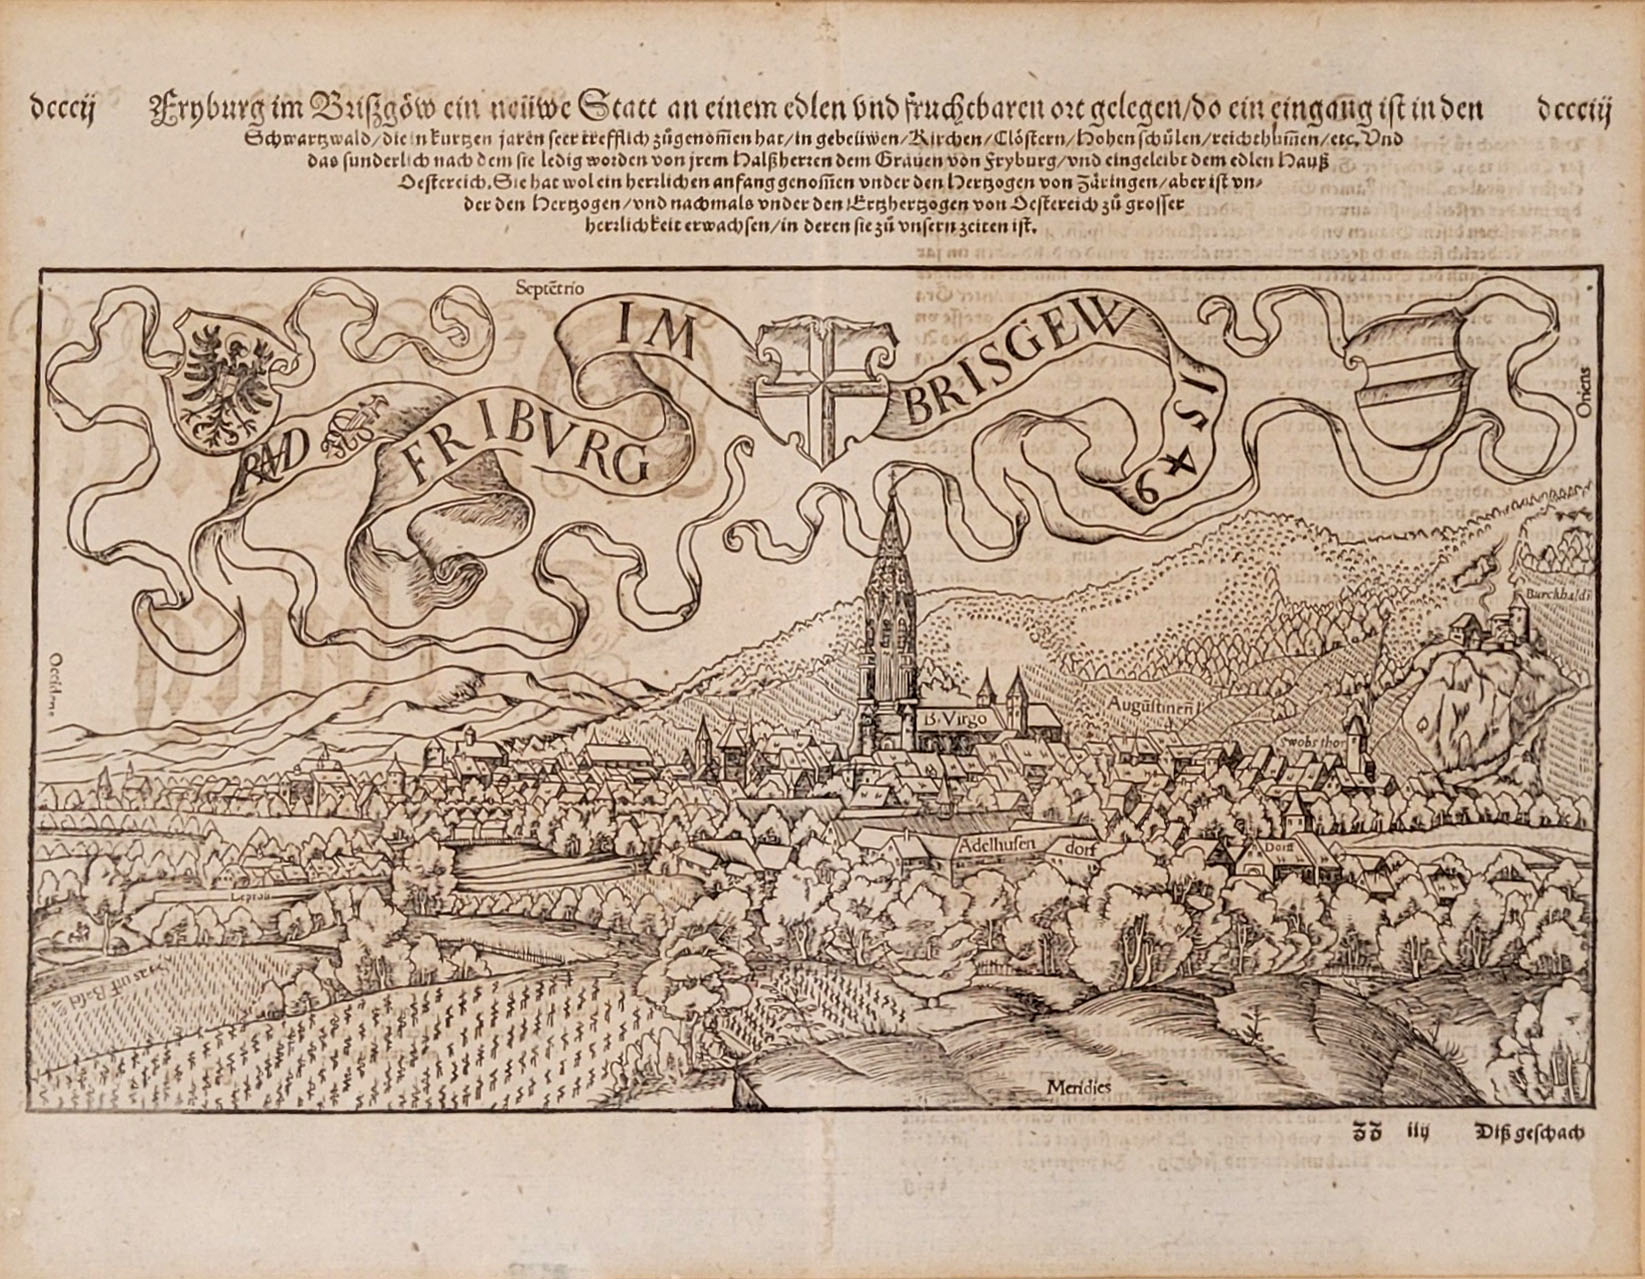 dcccij Fryburg im Brißgöw ein neüwe Statt an einem edlen vnd fruchtbaren ort gelegen/do ein eingang ist in den dccciij
Schwartzwald/die in kurtzen jaren seer trefflich zůgenom̃en hat/in gebeüwen/Kirchen/Clöstern/Hohen schůlen/reichthům̃en/etc. Vnd
das sunderlich nach dem sie ledig worden von jrem Halßherren dem Grauen von Fryburg/vnd eingeleibt dem edlen Hauß
Oesterreich. Sie hat wol ein herrlichen anfang genom̃en vnder den Hertzogen von Zäringen/aber ist vn-
der den Hertzogen/vnd nachmals vnder den Ertzhertzogen von Oesterreich zů grosser
herrlichkeit erwachsen/in deren sie zů vnsern zeiten ist.
Septẽtrio
IM
BRISGEW
1549
FRIBVRG
Oriens
Burchhaldē
Occidens
B. Virgo
Augustinen
Swobs thor
Adelhusen dorf
Dorff
Leprosi
uff Basel
Meridies
ZZ iiij Diß geschach